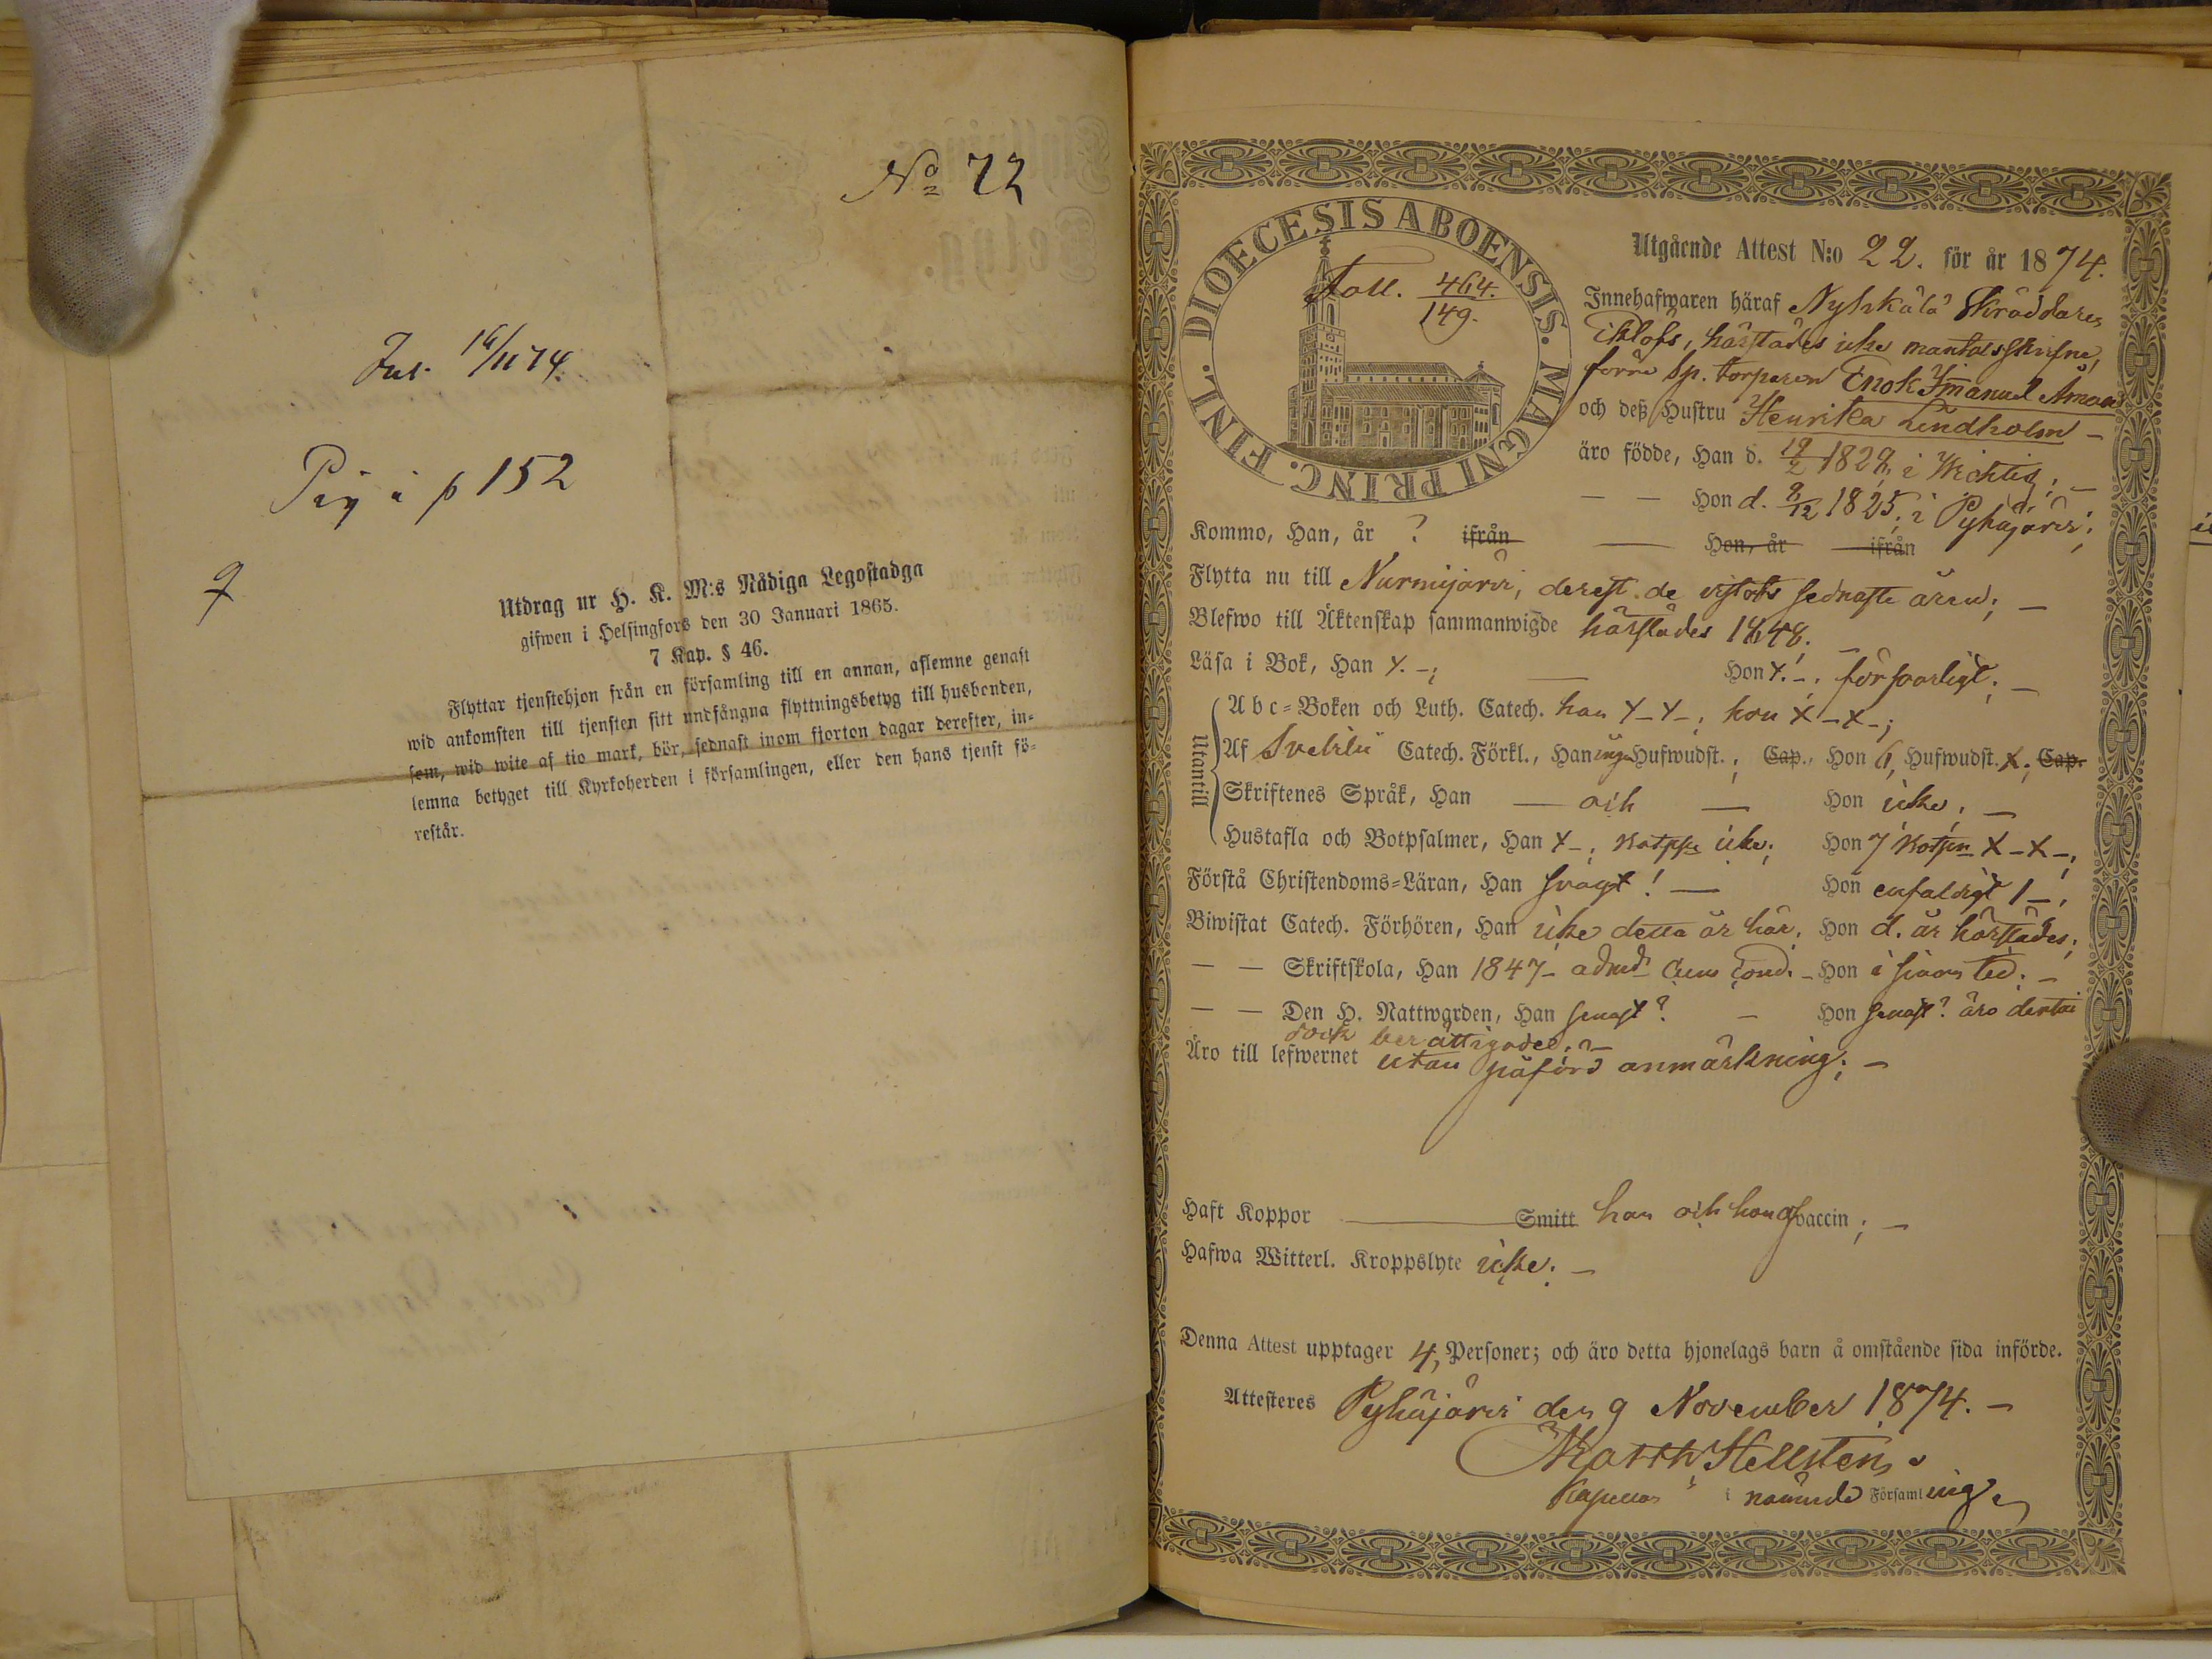 No 72
Ink. 16/11 74.
Pig i p 152
Utdrag ur H. K. M:s Nådiga Legostadga
gifwen i Helsingfors den 30 Januari 1865.
7 Kap. § 46.
Flyttar tjenstehjon från en församling till en annan, aflemne genast
wid ankomsten till tjensten sitt undfångna flyttningsbetyg till husbonden,
som, wid wite af tio mark, bör, sednast inom fjorton dagar derefter, in-
lemna betyget till Kyrkoherden i församlingen, eller den hans tjenst fö-
restår.
DIOECESIS ABOENSIS. MAGNI PRINC. FINL.
Foll. 464.
149.
Utgående Attest N:o 22. för år 1874.
Innehafwaren häraf Nyhkälä Skräddaren
Eklöfs, härstädes icke mantalsskrifne,
förre Sp. torparen Enok Imanuel Åman
och deß Hustru Henrika Lindholm –
äro födde, Han d. 19/2 1829, i Wichtis; –
— — Hon d. 8/12 1825, i Pyhäjärvi;
Kommo, Han, år ? ifrån — Hon, år — ifrån
Flytta nu till Nurmijärvi, derest de vistats sednaste åren; –
Blefwo till Äktenskap sammanwigde härstädes 1848.
Läsa i Bok, Han X. –; — Hon X. –. försvarligt; –
Utantill
Abc-Boken och Luth. Catech. han X – X –; hon X – X –;
Af Svebilii Catech. Förkl., Han inga Hufwudst.; Cap., Hon 6, Hufwudst. X; Cap.
Skriftenes Språk, Han — och — Hon icke; –
Hustafla och Botpsalmer, Han X –; Botpss icke; Hon 7 Botpsn X – X –;
Förstå Christendoms-Läran, Han svagt! — Hon enfaldigt 1 –;
Biwistat Catech. Förhören, Han icke detta år här; Hon d. år härstädes;
— — Skriftskola, Han 1847 – admd. cum cond. – Hon i sinom tid. –
— — Den H. Nattwarden, Han senast? – Hon senast? äro dertill
dock berättigade; –
Äro till lefwernet utan påförd anmärkning; –
Haft Koppor — Smitt han och hon af vaccin; –
Hafwa Witterl. Kroppslyte icke; –
Denna Attest upptager 4, Personer; och äro detta hjonelags barn å omstående sida införde.
Attesteres Pyhäjärvi den 9 November 1874. –
Matth Hellstén,
Kapellan i nämnde Församling